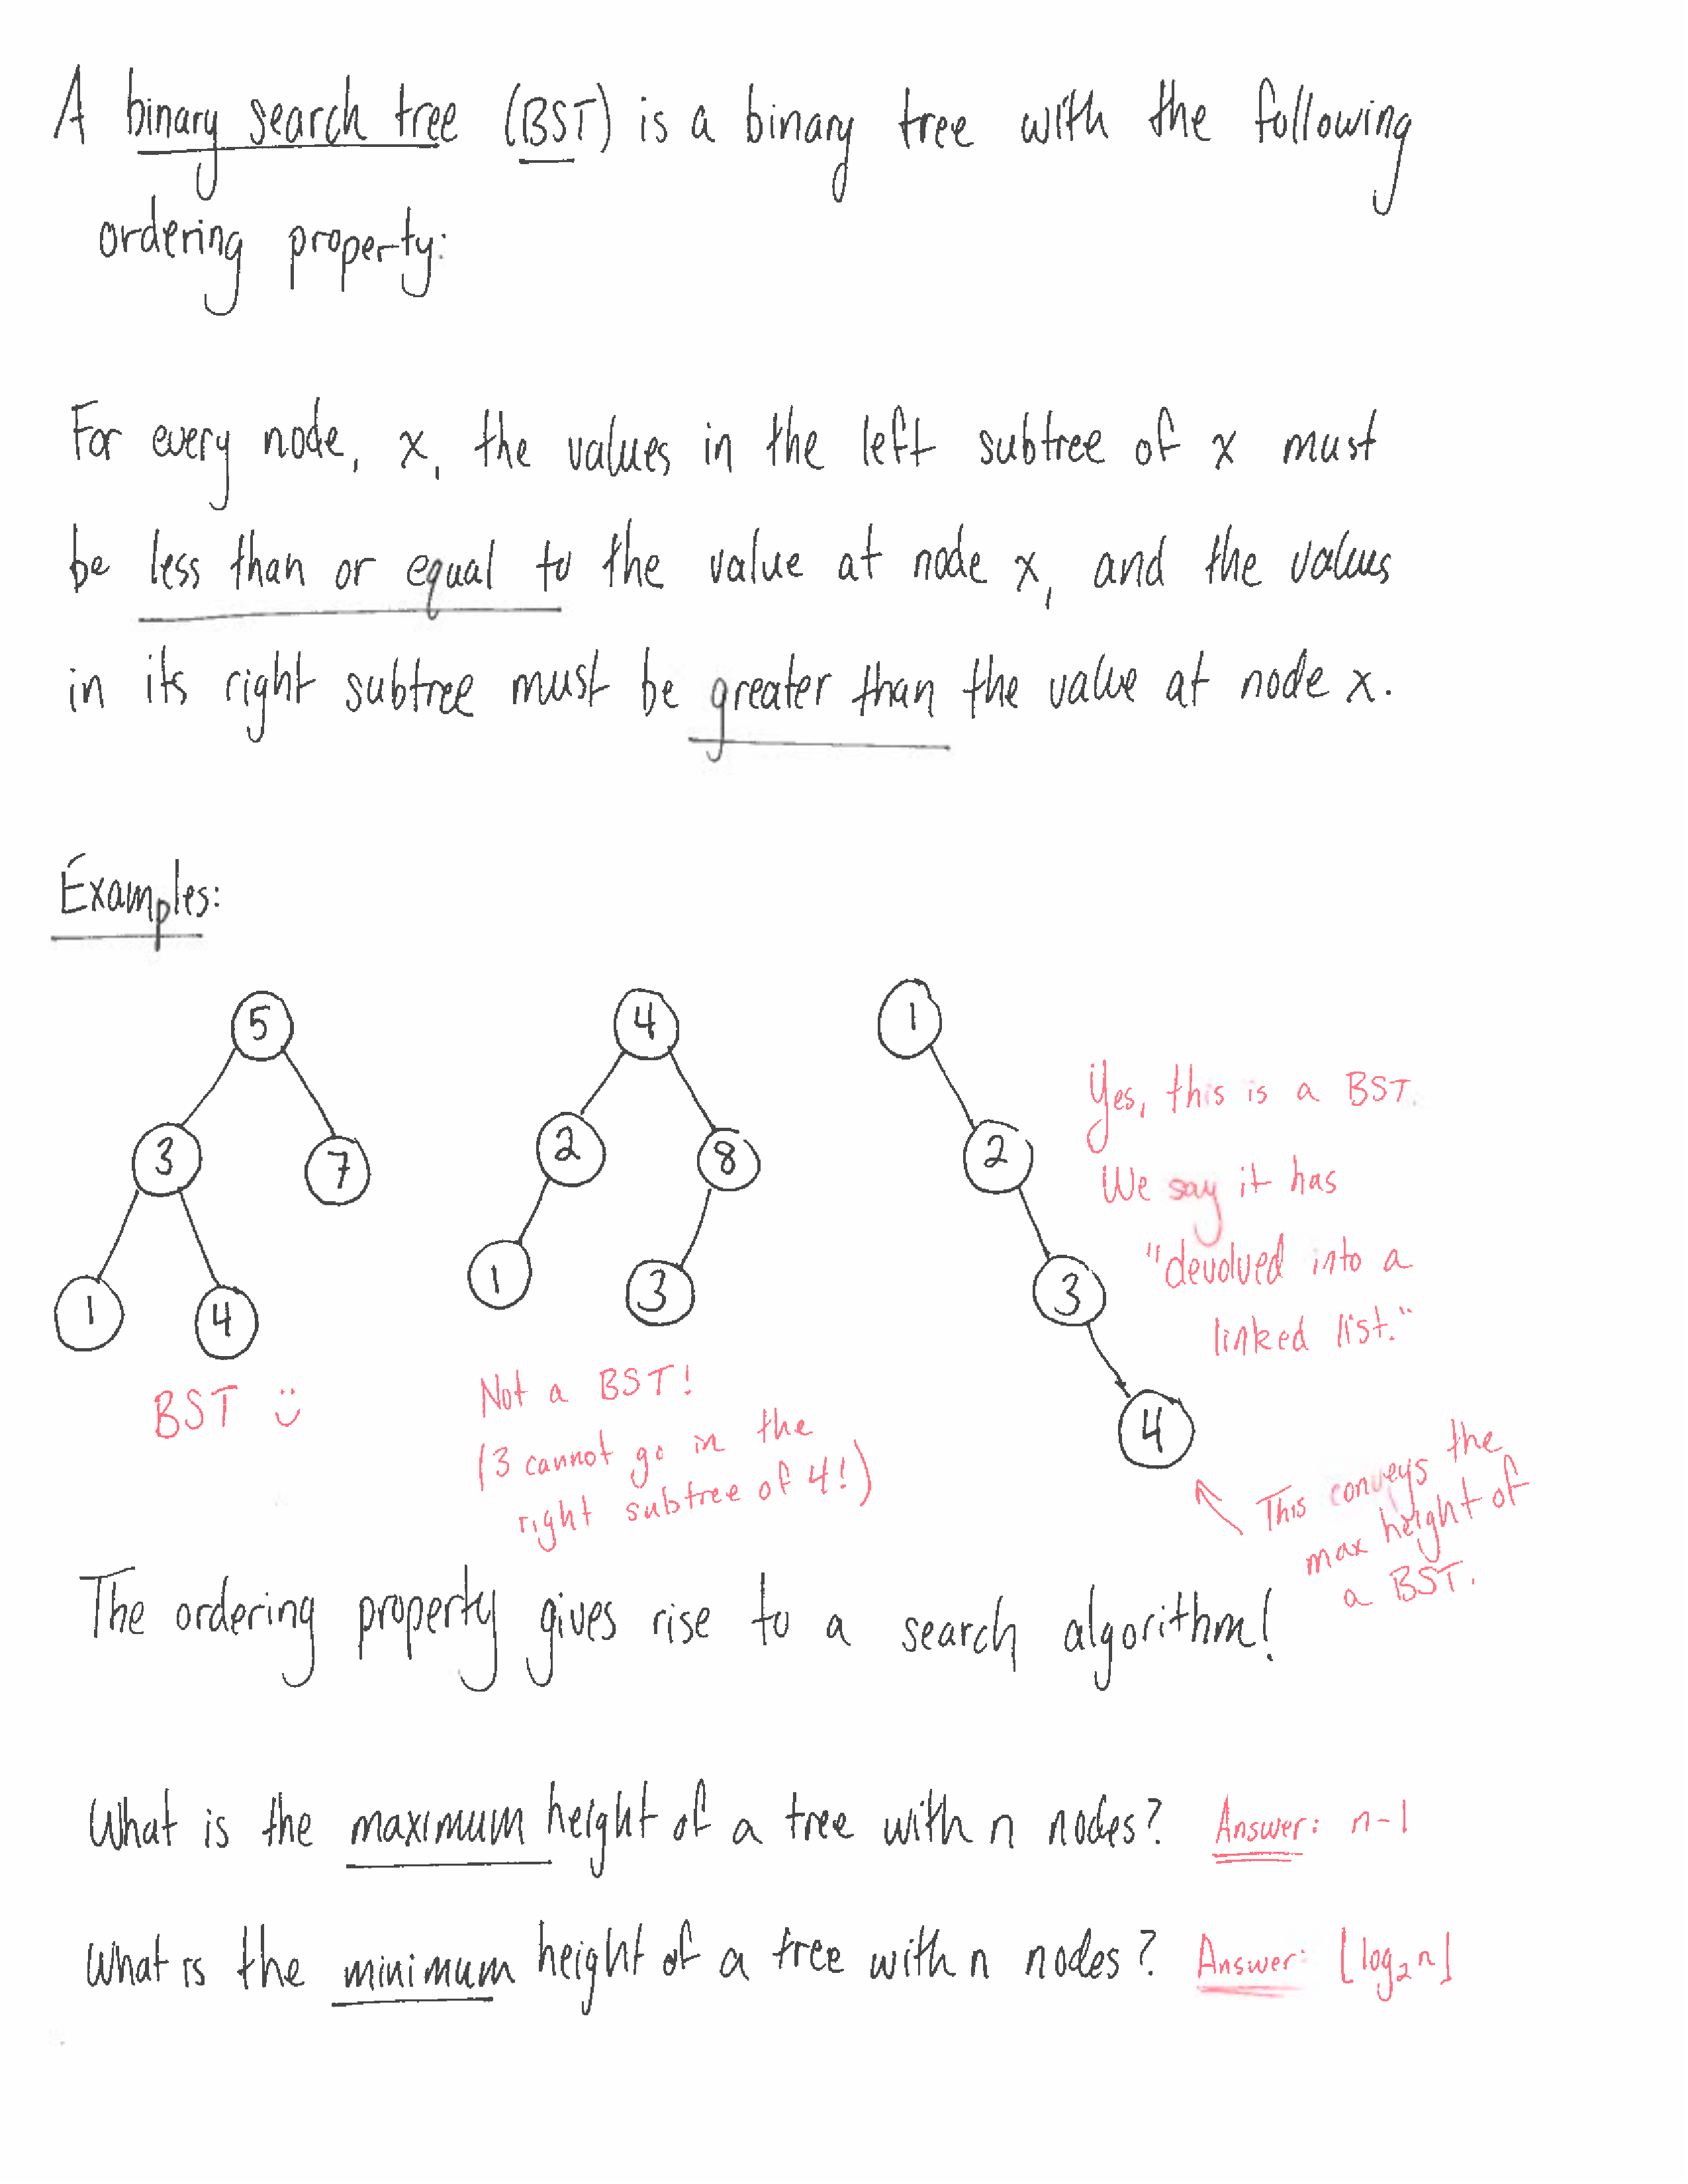 A binary search tree (BST) is a binary tree with the following
ordering property:
For every node, x, the values in the left subtree of x must
be less than or equal to the value at node x, and the values
in its right subtree must be greater than the value at node x.
Examples:
5
3
7
1
4
BST :)
4
2
8
1
3
Not a BST!
(3 cannot go in the
right subtree of 4!)
1
2
3
4
Yes, this is a BST.
We say it has
"devolved into a
linked list."
This conveys the
max height of
a BST.
The ordering property gives rise to a search algorithm!
What is the maximum height of a tree with n nodes? Answer: n-1
What is the minimum height of a tree with n nodes? Answer: ⌊log₂n⌋